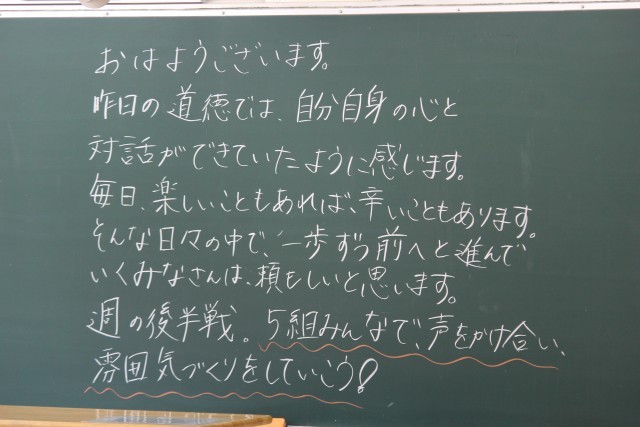 おはようございます。
昨日の道徳では、自分自身の心と
対話ができていたように感じます。
毎日、楽しいこともあれば、辛いこともあります。
そんな日々の中で、一歩ずつ前へと進んで
いくみなさんは、頼もしいと思います。
週の後半戦。5組みんなで、声をかけ合い、
雰囲気づくりをしていこう!